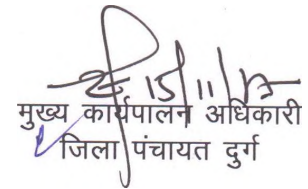 15/11/17
मुख्य कार्यपालन अधिकारी
जिला पंचायत दुर्ग